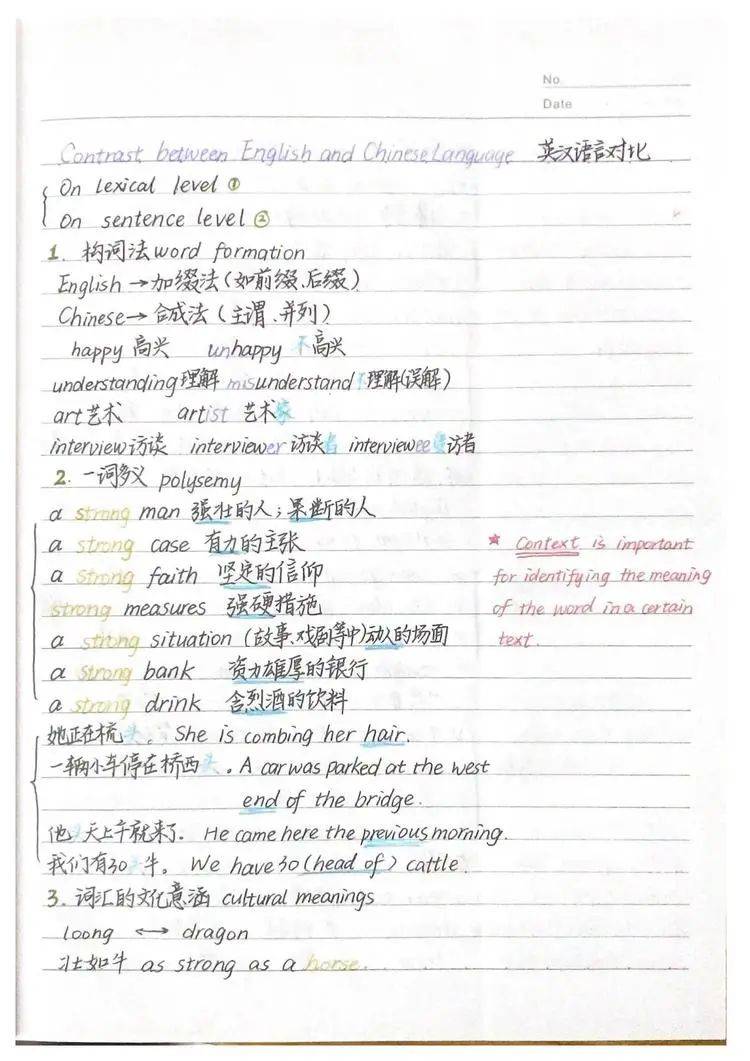 No.
Date
Contrast between English and Chinese Language 英汉语言对比
On lexical level ①
On sentence level ②
1. 构词法 word formation
English → 加缀法(如前缀、后缀)
Chinese → 合成法(主谓、并列)
happy 高兴 unhappy 不高兴
understanding 理解 misunderstand 不理解(误解)
art 艺术 artist 艺术家
interview 访谈 interviewer 访谈者 interviewee 受访者
2. 一词多义 polysemy
a strong man 强壮的人;果断的人
a strong case 有力的主张
a strong faith 坚定的信仰
strong measures 强硬措施
a strong situation (故事、戏剧等中)动人的场面
a strong bank 资力雄厚的银行
a strong drink 含烈酒的饮料
★ Context is important
for identifying the meaning
of the word in a certain
text.
她正在梳头。 She is combing her hair.
一辆小车停在桥西头。A car was parked at the west
end of the bridge.
他头天上午就来了。 He came here the previous morning.
我们有30头牛。 We have 30 (head of) cattle.
3. 词汇的文化意涵 cultural meanings
loong ↔ dragon
壮如牛 as strong as a horse.